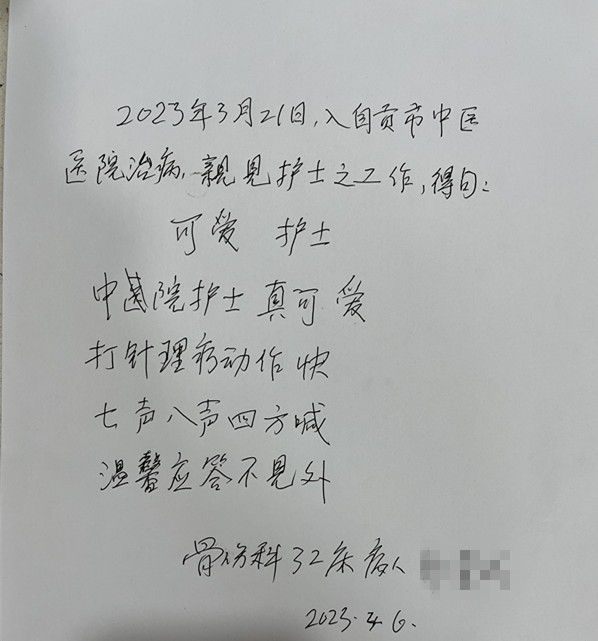 2023年3月21日,入自贡市中医
医院治病,親見护士之工作,得句:
可爱 护士
中医院护士真可爱
打针理疗动作快
七声八声四方喊
温馨应答不見外
骨伤科32床病人
2023.4.6.